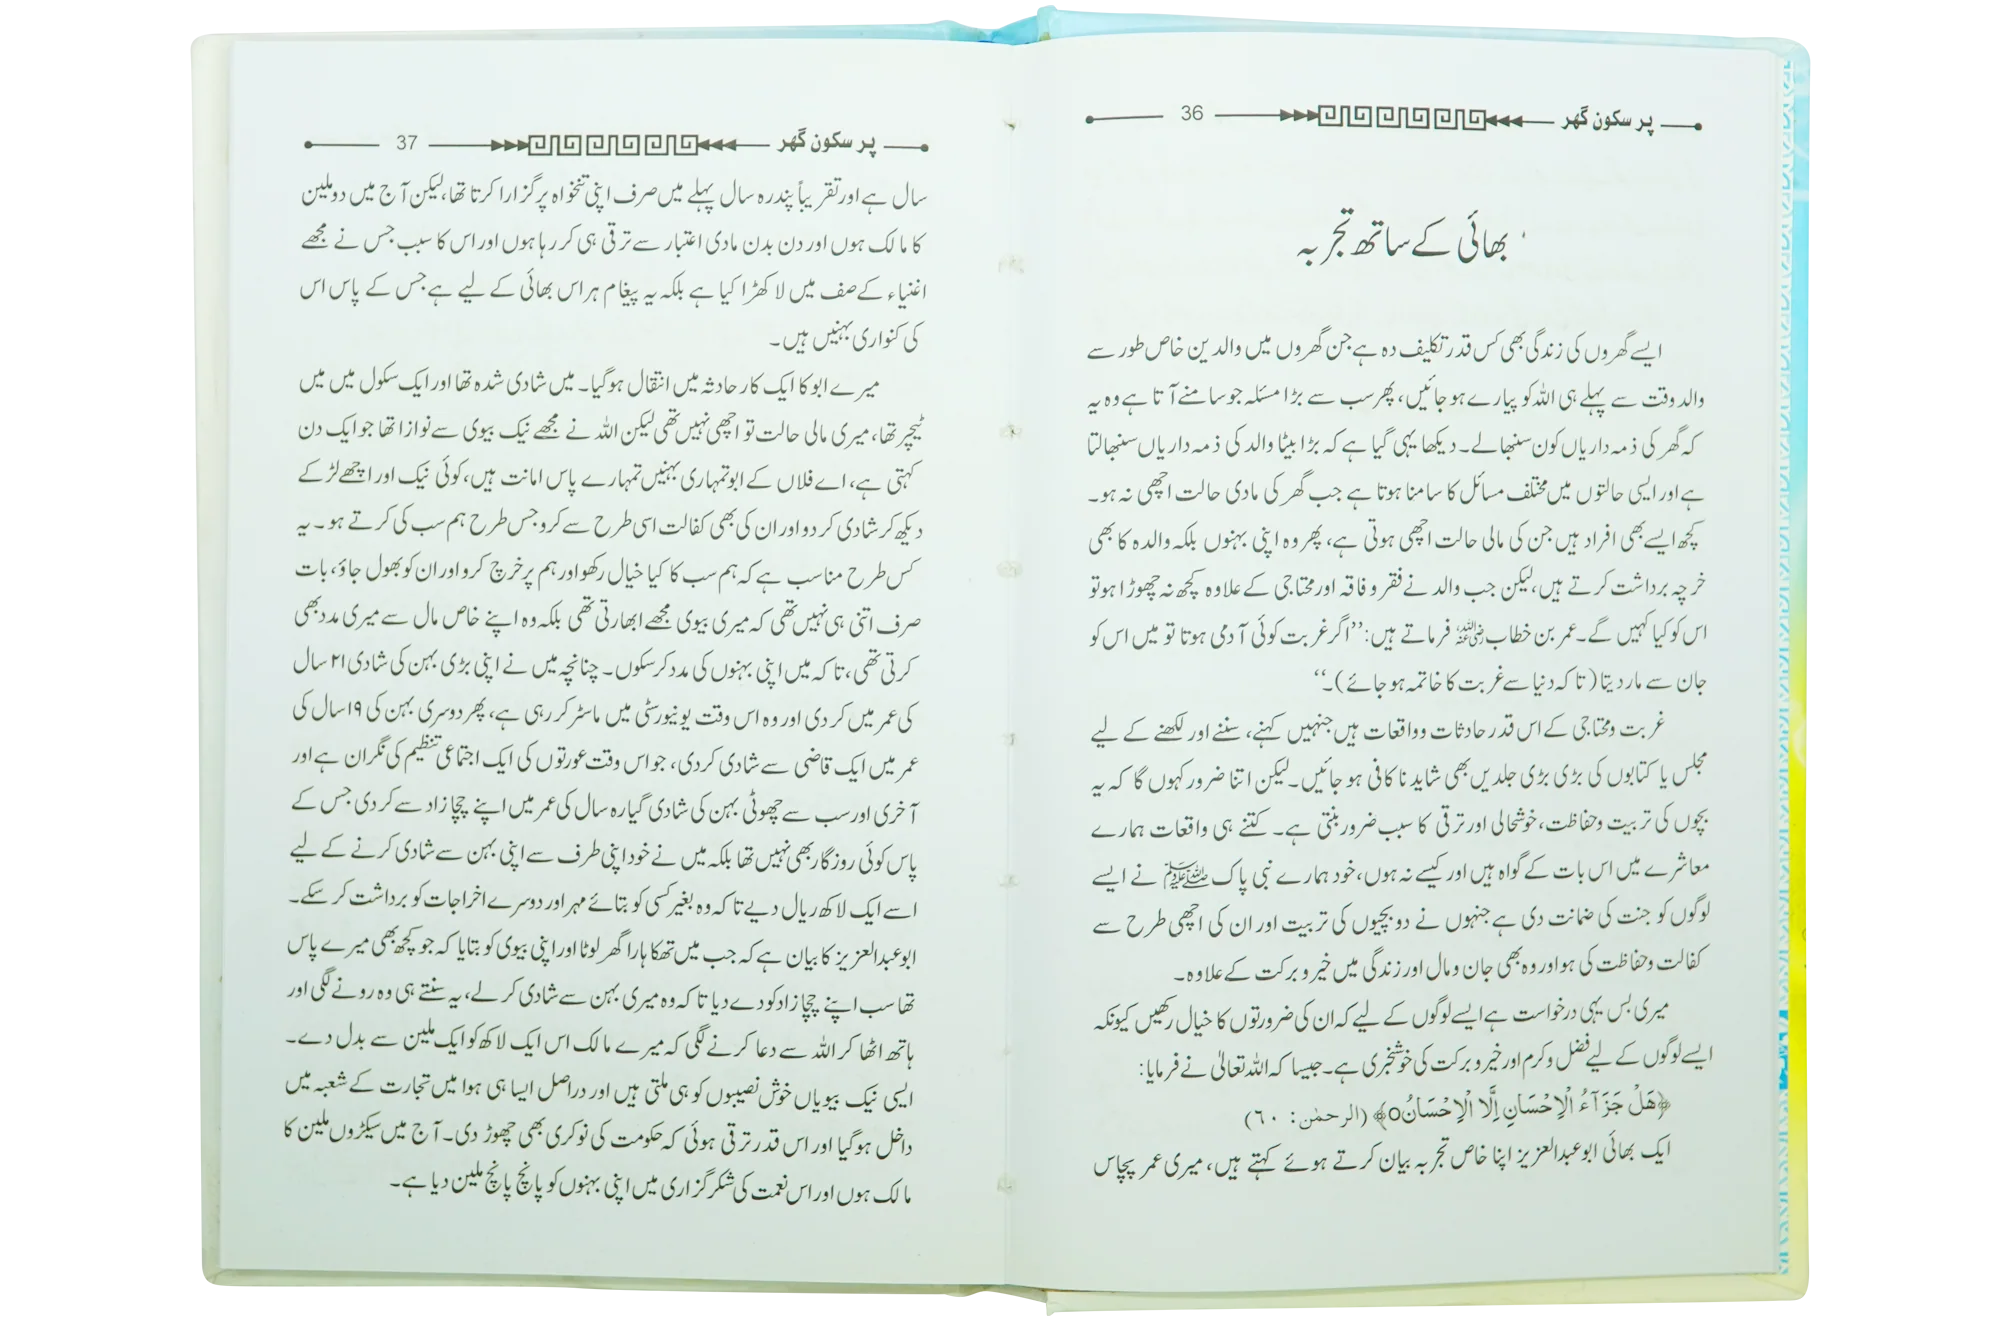 پر سکون گھر 36
بھائی کے ساتھ تجربہ
ایسے گھروں کی زندگی بھی کس قدر تکلیف دہ ہے جن گھروں میں والدین خاص طور سے
والد وقت سے پہلے ہی اللہ کو پیارے ہو جائیں، پھر سب سے بڑا مسئلہ جو سامنے آتا ہے وہ یہ
کہ گھر کی ذمہ داریاں کون سنبھالے۔ دیکھا یہی گیا ہے کہ بڑا بیٹا والد کی ذمہ داریاں سنبھالتا
ہے اور ایسی حالتوں میں مختلف مسائل کا سامنا ہوتا ہے جب گھر کی مادی حالت اچھی نہ ہو۔
کچھ ایسے بھی افراد ہیں جن کی مالی حالت اچھی ہوتی ہے، پھر وہ اپنی بہنوں بلکہ والدہ کا بھی
خرچہ برداشت کرتے ہیں، لیکن جب والد نے فقر و فاقہ اور محتاجی کے علاوہ کچھ نہ چھوڑا ہو تو
اس کو کیا کہیں گے۔ عمر بن خطاب رضی اللہ عنہ فرماتے ہیں: ’’اگر غربت کوئی آدمی ہوتا تو میں اس کو
جان سے مار دیتا (تاکہ دنیا سے غربت کا خاتمہ ہو جائے)۔‘‘
غربت و محتاجی کے اس قدر حادثات و واقعات ہیں جنہیں کہنے، سننے اور لکھنے کے لیے
مجلس یا کتابوں کی بڑی بڑی جلدیں بھی شاید ناکافی ہو جائیں۔ لیکن اتنا ضرور کہوں گا کہ یہ
بچوں کی تربیت و حفاظت، خوشحالی اور ترقی کا سبب ضرور بنتی ہے۔ کتنے ہی واقعات ہمارے
معاشرے میں اس بات کے گواہ ہیں اور کیسے نہ ہوں، خود ہمارے نبی پاک ﷺ نے ایسے
لوگوں کو جنت کی ضمانت دی ہے جنہوں نے دو بچیوں کی تربیت اور ان کی اچھی طرح سے
کفالت و حفاظت کی ہو اور وہ بھی جان و مال اور زندگی میں خیر و برکت کے علاوہ۔
میری بس یہی درخواست ہے ایسے لوگوں کے لیے کہ ان کی ضرورتوں کا خیال رکھیں کیونکہ
ایسے لوگوں کے لیے فضل و کرم اور خیر و برکت کی خوشخبری ہے۔ جیسا کہ اللہ تعالیٰ نے فرمایا:
﴿هَلْ جَزَآءُ الْاِحْسَانِ اِلَّا الْاِحْسَانُ﴾ (الرحمٰن: ٦٠)
ایک بھائی ابو عبدالعزیز اپنا خاص تجربہ بیان کرتے ہوئے کہتے ہیں، میری عمر پچاس
پر سکون گھر 37
سال ہے اور تقریباً پندرہ سال پہلے میں صرف اپنی تنخواہ پر گزارا کرتا تھا، لیکن آج میں دو ملین
کا مالک ہوں اور دن بدن مادی اعتبار سے ترقی ہی کر رہا ہوں اور اس کا سبب جس نے مجھے
اغنیاء کے صف میں لا کھڑا کیا ہے بلکہ یہ پیغام ہر اس بھائی کے لیے ہے جس کے پاس اس
کی کنواری بہنیں ہیں۔
میرے ابو کا ایک کار حادثہ میں انتقال ہو گیا۔ میں شادی شدہ تھا اور ایک سکول میں میں
ٹیچر تھا، میری مالی حالت تو اچھی نہیں تھی لیکن اللہ نے مجھے نیک بیوی سے نوازا تھا جو ایک دن
کہتی ہے، اے فلاں کے ابو تمہاری بہنیں تمہارے پاس امانت ہیں، کوئی نیک اور اچھے لڑکے
دیکھ کر شادی کر دو اور ان کی بھی کفالت اسی طرح سے کرو جس طرح ہم سب کی کرتے ہو۔ یہ
کس طرح مناسب ہے کہ ہم سب کا کیا خیال رکھو اور ہم پر خرچ کرو اور ان کو بھول جاؤ، بات
صرف اتنی ہی نہیں تھی کہ میری بیوی مجھے ابھارتی تھی بلکہ وہ اپنے خاص مال سے میری مدد بھی
کرتی تھی، تاکہ میں اپنی بہنوں کی مدد کر سکوں۔ چنانچہ میں نے اپنی بڑی بہن کی شادی ۲۱ سال
کی عمر میں کر دی اور وہ اس وقت یونیورسٹی میں ماسٹر کر رہی ہے، پھر دوسری بہن کی ۱۹ سال کی
عمر میں ایک قاضی سے شادی کر دی، جو اس وقت عورتوں کی ایک اجتماعی تنظیم کی نگران ہے اور
آخری اور سب سے چھوٹی بہن کی شادی گیارہ سال کی عمر میں اپنے چچا زاد سے کر دی جس کے
پاس کوئی روزگار بھی نہیں تھا بلکہ میں نے خود اپنی طرف سے اپنی بہن سے شادی کرنے کے لیے
اسے ایک لاکھ ریال دیے تاکہ وہ بغیر کسی کو بتائے مہر اور دوسرے اخراجات کو برداشت کر سکے۔
ابو عبدالعزیز کا بیان ہے کہ جب میں تھکا ہارا گھر لوٹا اور اپنی بیوی کو بتایا کہ جو کچھ بھی میرے پاس
تھا سب اپنے چچا زاد کو دے دیا تاکہ وہ میری بہن سے شادی کر لے، یہ سنتے ہی وہ رونے لگی اور
ہاتھ اٹھا کر اللہ سے دعا کرنے لگی کہ میرے مالک اس ایک لاکھ کو ایک ملین سے بدل دے۔
ایسی نیک بیویاں خوش نصیبوں کو ہی ملتی ہیں اور دراصل ایسا ہی ہوا میں تجارت کے شعبہ میں
داخل ہو گیا اور اس قدر ترقی ہوئی کہ حکومت کی نوکری بھی چھوڑ دی۔ آج میں سیکڑوں ملین کا
مالک ہوں اور اس نعمت کی شکر گزاری میں اپنی بہنوں کو پانچ پانچ ملین دیا ہے۔